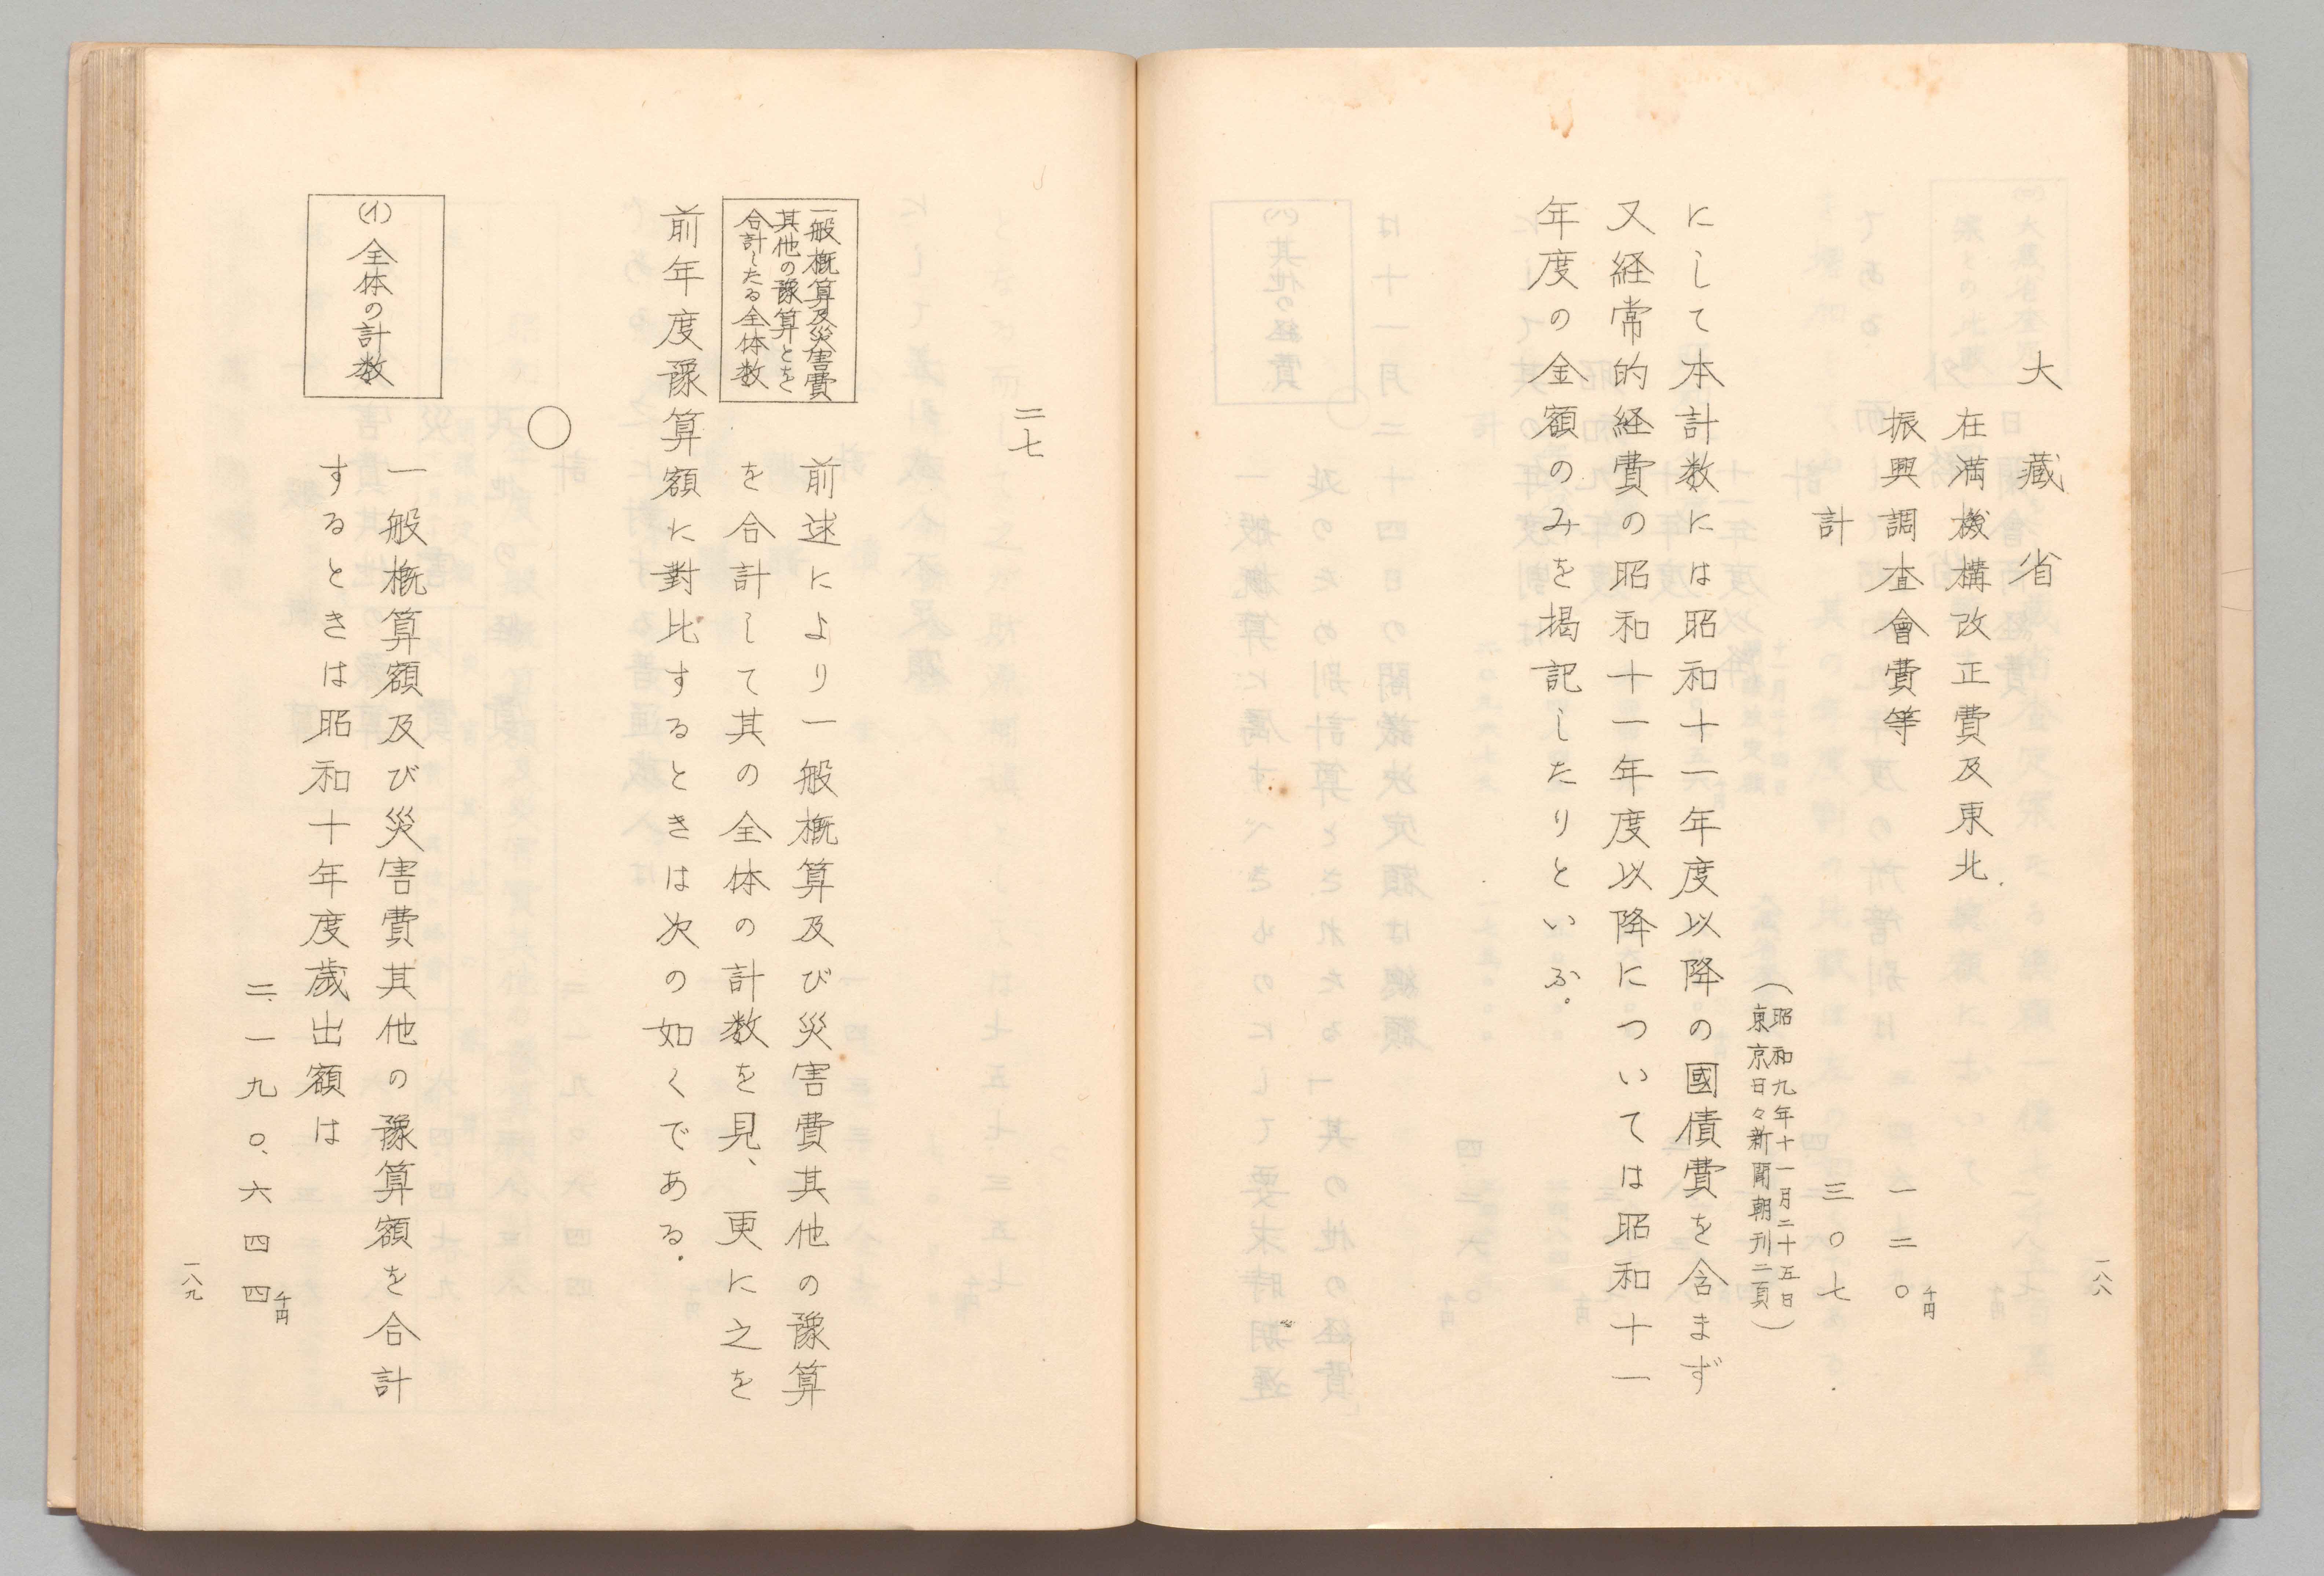 大藏省
在満機構改正費及東北
振興調査會費等　一二〇千円
計　三〇七
（昭和九年十一月二十五日
東京日々新聞朝刊二頁）
にして本計数には昭和十一年度以降の國債費を含まず
又経常的経費の昭和十一年度以降については昭和十一
年度の金額のみを掲記したりといふ。
一八八
二七
一般概算及災害費
其他の豫算とを
合計したる全体数
前述により一般概算及び災害費其他の豫算
を合計して其の全体の計数を見、更に之を
前年度豫算額に對比するときは次の如くである.
○
(イ)全体の計数
一般概算額及び災害費其他の豫算額を合計
するときは昭和十年度歳出額は
二、一九〇、六四四千円
一八九